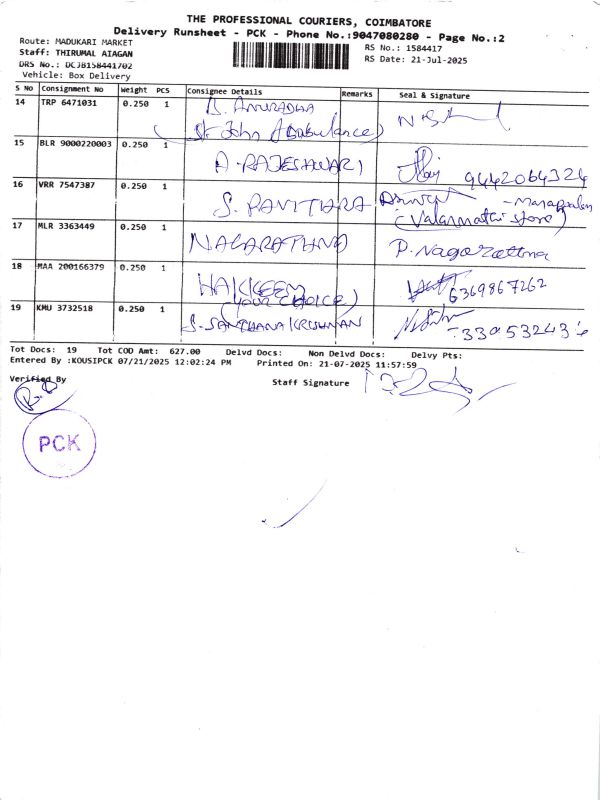 THE PROFESSIONAL COURIERS, COIMBATORE
Delivery Runsheet - PCK - Phone No.:9047080280 - Page No.:2
Route: MADUKARI MARKET
RS No.: 1584417
Staff: THIRUMAL AIAGAN
RS Date: 21-Jul-2025
DRS No.: DCJB158441702
Vehicle: Box Delivery
S NO Consignment No Weight PCS Consignee Details Remarks Seal & Signature
14 TRP 6471031 0.250 1 B. ANURADHA
(St. John Ambulance)
15 BLR 9000220003 0.250 1 A. RAJESHWARI 9442064324
16 VRR 7547387 0.250 1 S. PAVITHRA
(Valarmathi store)
17 MLR 3363449 0.250 1 NAGARATHNA P. Nagarattna
18 MAA 200166379 0.250 1 HAKKEEM 6369867262
(your CHOICE)
19 KMU 3732518 0.250 1 S. SANTHANA KRISHNAN
Tot Docs: 19 Tot COD Amt: 627.00 Delvd Docs: Non Delvd Docs: Delvy Pts:
Entered By :KOUSIPCK 07/21/2025 12:02:24 PM Printed On: 21-07-2025 11:57:59
Verified By
Staff Signature
PCK